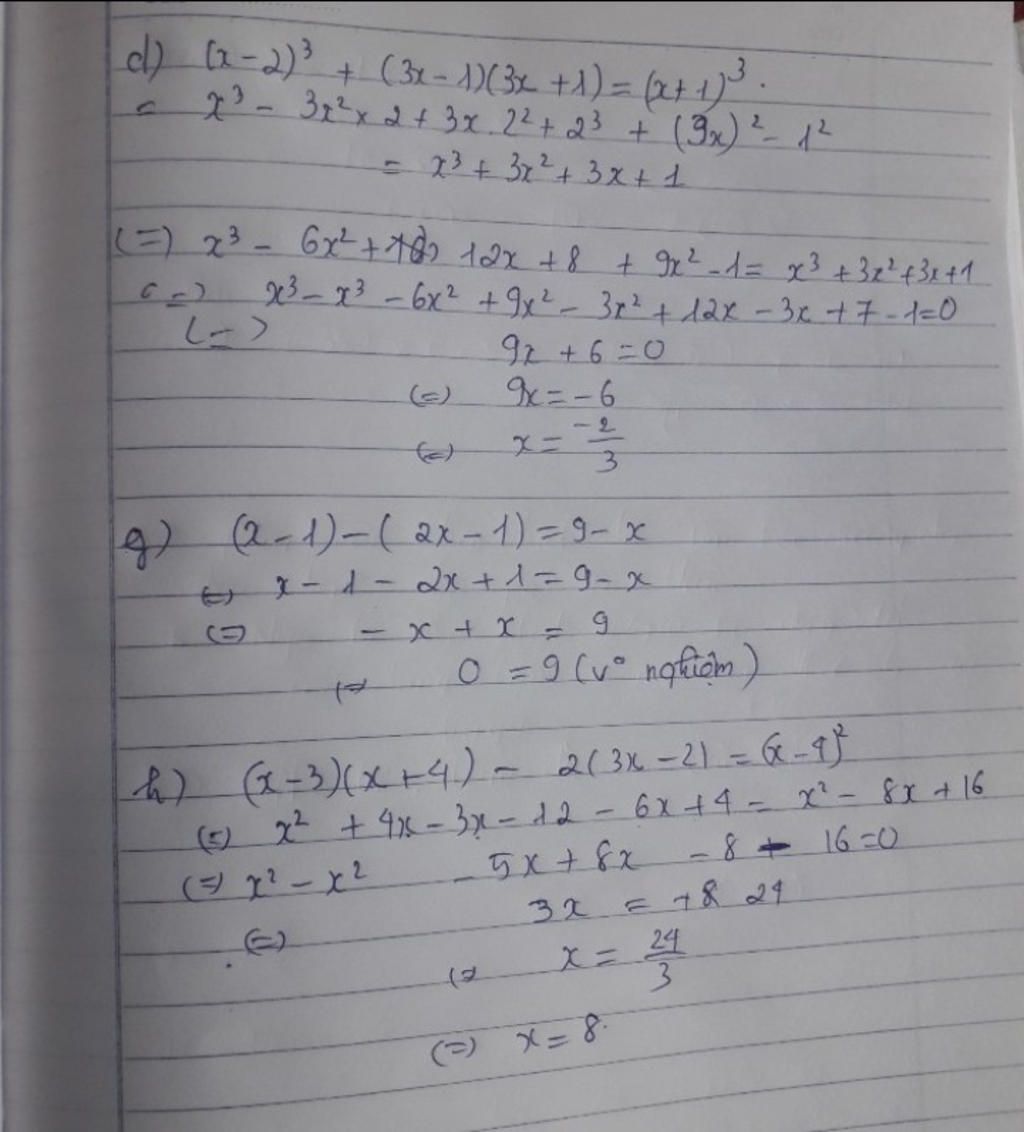 d) (x-2)³ + (3x-1)(3x+1)=(x+1)³.
= x³ - 3x²x 2 + 3x.2² + 2³ + (3x)² - 1²
= x³ + 3x² + 3x + 1
(=) x³ - 6x² + 12x + 8 + 9x² - 1 = x³ + 3x² + 3x + 1
(=) x³ - x³ - 6x² + 9x² - 3x² + 12x - 3x + 7 - 1=0
(=) 9x + 6 = 0
(=) 9x = -6
(=) x = -2/3
g) (x-1)-(2x-1)=9-x
(=) x - 1 - 2x + 1 = 9 - x
(=) - x + x = 9
(=) 0 = 9 (vô nghiệm)
h) (x-3)(x+4) - 2(3x-2) = (x-4)²
(=) x² + 4x - 3x - 12 - 6x + 4 = x² - 8x + 16
(=) x² - x² - 5x + 8x - 8 - 16=0
(=) 3x = +8 24
(=) x = 24/3
(=) x = 8.